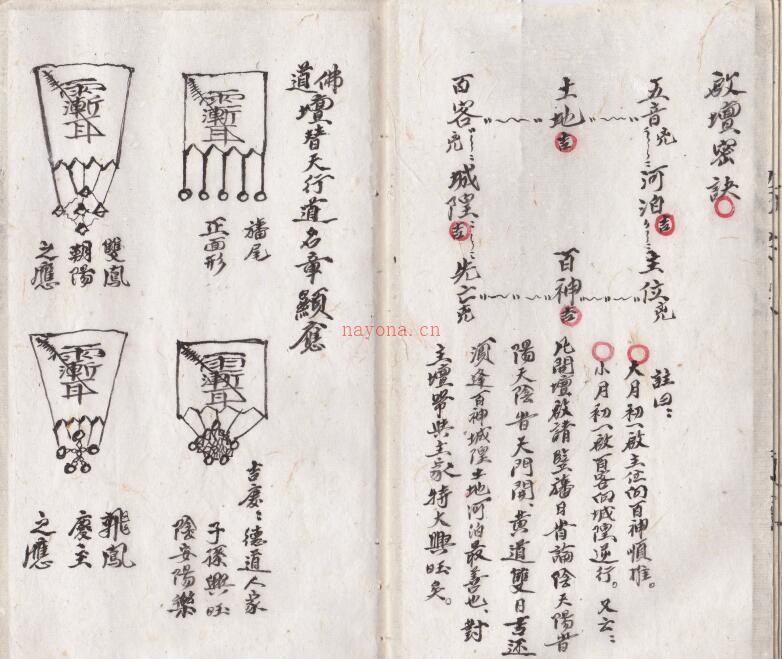 啟壇密訣
五音凶
河泊吉
主位凶
土地吉
百神吉
百客凶
城隍吉
先亡凶
註曰：
大月初一啟主位向百神順推。
小月初一啟百客向城隍逆行。又云：
凡開壇啟請竪旛日皆論陰天陽昔
陽天陰昔天門開、黃道雙日吉还
須逢百神城隍土地河泊最善也、對
主壇帶與主家特大興旺矣。
佛
道
壇替天行道名章顯應
旛尾
正面形
雙鳳
朝陽
之應
吉慶：德道人家
子孫興旺
陰安陽樂
飛鳳
慶主
之應
nayona.cn